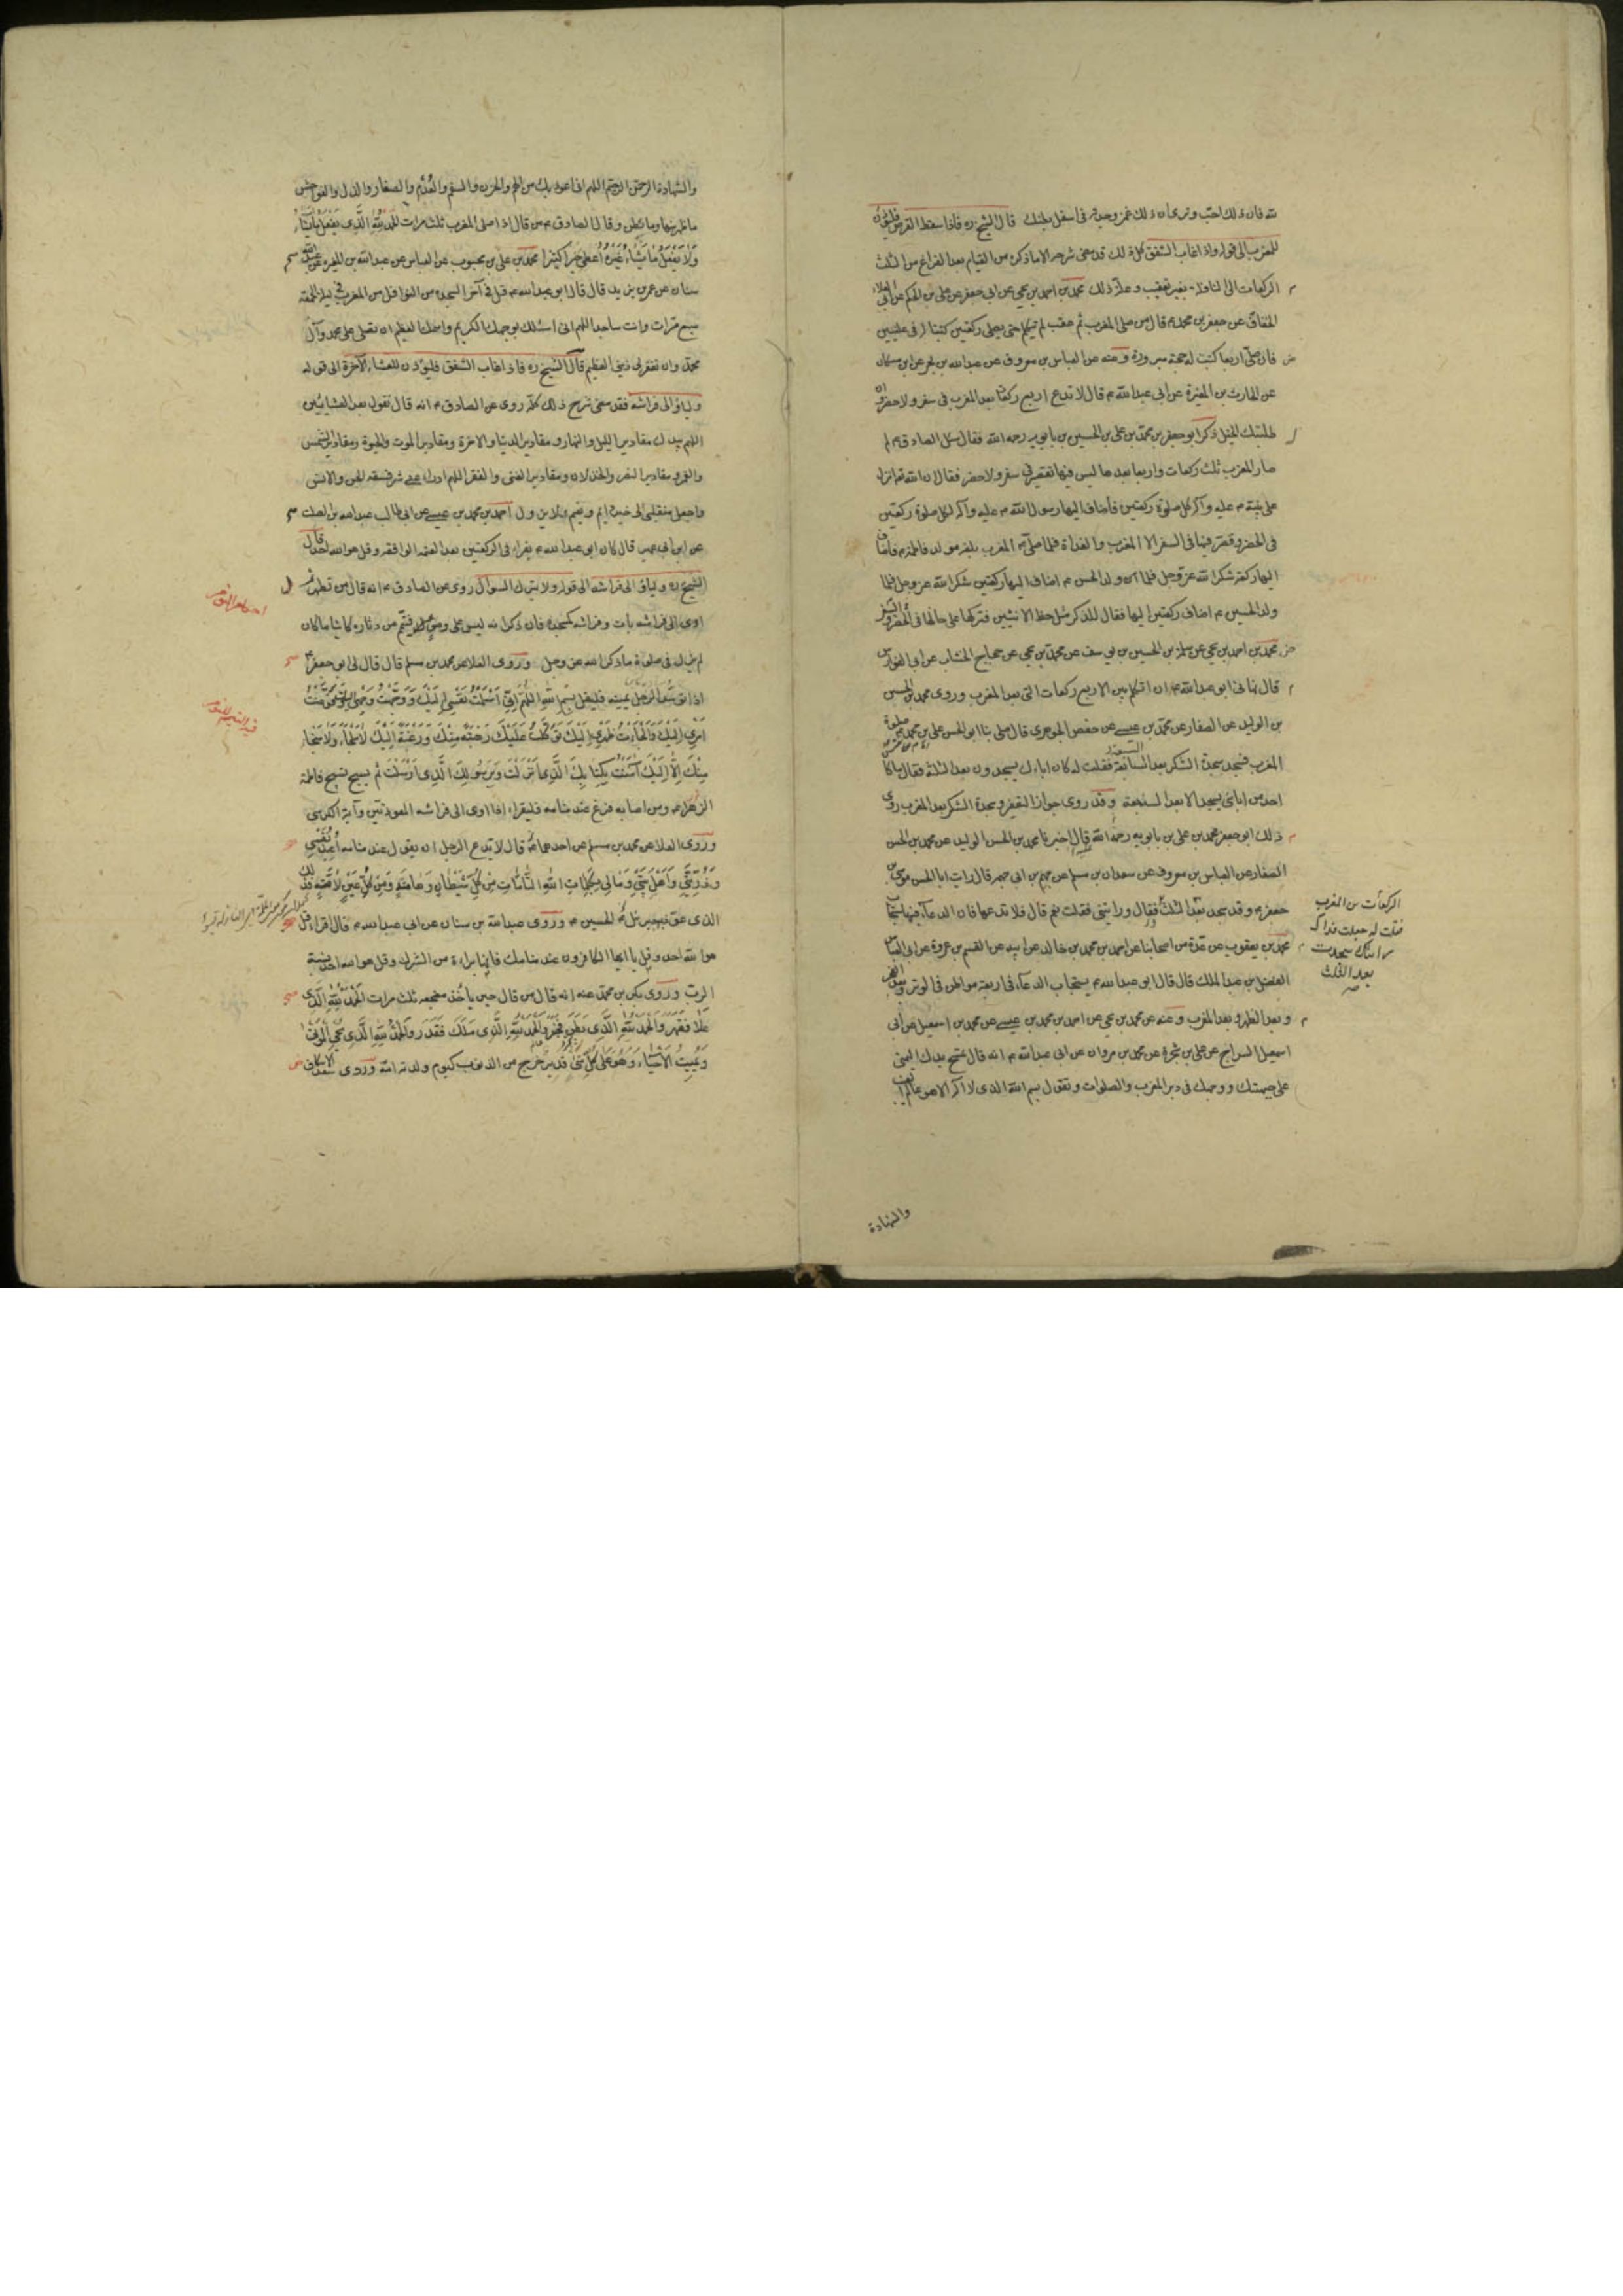 لله فان ذلك احب وترى ان ذلك غمز وحيوة في اسفل بطنك قال الشيخ ره فاذا سقط القرص فليؤذن
للمغرب الى قوله واذا غاب الشفق كل ذلك قد مضى شرحه الا ما ذكره من القيام بعد الفراغ من الثلث
الركعات الى النافلة بغير تعقيب وعلة ذلك محمد بن احمد بن يحيى عن ابي جعفر عن علي بن الحكم عن ابي العلاء
الخفاف عن جعفر بن محمد م قال من صلى المغرب ثم عقب لم يتكلم حتى يصلي ركعتين كتبتا له في عليين
فان صلى اربعا كتبت له حجة مبرورة وعنه عن العباس بن معروف عن عبد الله بن بحر عن ابن مسكان
عن الحارث بن المغيرة عن ابي عبد الله م قال لا تدع اربع ركعات بعد المغرب في سفر ولا حضر وان
طلبتك الخيل ذكر ابو جعفر بن محمد بن علي بن الحسين بن بابويه رحمه الله فقال سئل الصادق م لم
صار المغرب ثلث ركعات واربعا بعدها ليس فيها تقصير في سفر ولا حضر فقال ان الله تعالى انزل
على نبيه م عليه وآله كل صلوة ركعتين فاضاف اليها رسول الله م عليه وآله لكل صلوة ركعتين
في الحضر وقصر فيها في السفر الا المغرب والغداة فلما صلى م المغرب بلغه مولد فاطمة م فاضاف
اليها ركعة شكرا لله عز وجل فلما ان ولد الحسن م اضاف اليها ركعتين شكرا لله عز وجل فلما
ولد الحسين م اضاف ركعتين اليها فقال للذكر مثل حظ الانثيين فتركها على حالها في الحضر والسفر
محمد بن احمد بن يحيى عن سلمة بن الحسين بن يوسف عن محمد بن يحيى عن حجاج الخشاب عن ابي الفوارس
قال نهاني ابو عبد الله م ان اتكلم بين الاربع ركعات التي بعد المغرب وروى محمد بن الحسن
بن الوليد عن الصفار عن محمد بن عيسى عن حفص الجوهري قال صلى بنا ابو الحسن علي بن محمد م صلوة
المغرب فسجد سجدة الشكر بعد السابعة فقلت له كان اباءك يسجدون بعد الثلثة فقال ما كان
احد من ابائي يسجد الا بعد السبعة وقد روى جواز التعفير وسجدة الشكر بعد المغرب روى
ذلك ابو جعفر محمد بن علي بن بابويه رحمه الله قال اخبرنا محمد بن الحسن الوليد عن محمد بن الحسن
الصفار عن العباس بن معروف عن سعدان بن مسلم عن جهم بن ابي جهم قال رايت ابا الحسن موسى بن
جعفر م وقد سجد بعد الثلث فقال ورايتني فقلت نعم قال فلا تدعها فان الدعاء فيها مستجاب
محمد بن يعقوب عن عدة من اصحابنا عن احمد بن محمد بن خالد عن ابيه عن القسم بن عروة عن ابي العباس
الفضل بن عبد الملك قال قال ابو عبد الله م يستجاب الدعاء في اربعة مواطن في الوتر وبعد الفجر
وبعد الظهر وبعد المغرب وعنه عن محمد بن يحيى عن احمد بن محمد بن عيسى عن محمد بن اسمعيل عن ابي
اسمعيل السراج عن علي بن شجرة عن محمد بن مروان عن ابي عبد الله م انه قال تمسح بيدك اليمنى
على جبهتك ووجهك في دبر المغرب والصلوات وتقول بسم الله الذي لا اله الا هو عالم الغيب
الركعات من المغرب
فقلت له جعلت فداك
رايتك سجدت
بعد الثلث
والشهادة
والشهادة الرحمن الرحيم اللهم اني اعوذ بك من الهم والحزن والسقم والعدم والصغار والذل والفواحش
ما ظهر منها وما بطن وقال الصادق م من قال اذا صلى المغرب ثلث مرات الحمد لله الذي يفعل ما يشاء
ولا يفعل ما يشاء غيره اعطي خيرا كثيرا محمد بن علي بن محبوب عن العباس عن عبد الله بن المغيرة عن عبد الله
سنان عن عمر بن يزيد قال قال ابو عبد الله م قل في آخر السجدة من النوافل من المغرب في ليلة الجمعة
سبع مرات وانت ساجد اللهم اني اسئلك بوجهك الكريم واسمك العظيم ان تصلي على محمد وآل
محمد وان تغفر لي ذنبي العظيم قال الشيخ ره فاذا غاب الشفق فليؤذن للعشاء الآخرة الى قوله
وليأو الى فراشه فقد مضى شرح ذلك كله روى عن الصادق م انه قال تقول بعد العشائين
اللهم بيدك مقادير الليل والنهار ومقادير الدنيا والآخرة ومقادير الموت والحيوة ومقادير الشمس
والقمر ومقادير النصر والخذلان ومقادير الغنى والفقر اللهم ادرء عني شر فسقة الجن والانس
واجعل منقلبي الى خير دائم ونعيم لا يزول احمد بن محمد بن عيسى عن ابي طالب عبد الله بن الصلت
عن ابن ابي عمير قال كان ابو عبد الله م يقراء في الركعتين بعد العتمة الواقعة وقل هو الله احد قال
الشيخ ره وليأو الى فراشه الى قوله ولا يترك السواك روى عن الصادق م انه قال من تطهر ثم
اوى الى فراشه بات وفراشه كمسجده فان ذكر انه ليس على وضوء فليتيمم من دثاره كائنا ما كان
لم يزل في صلوة ما ذكر الله عز وجل وروى العلا عن محمد بن مسلم قال قال لي ابو جعفر م
اذا توسد الرجل يمينه فليقل بسم الله اللهم اني اسلمت نفسي اليك ووجهت وجهي اليك وفوضت
امري اليك والجأت ظهري اليك توكلت عليك رهبة منك ورغبة اليك لا ملجأ ولا منجا
منك الا اليك آمنت بكتابك الذي انزلت وبرسولك الذي ارسلت ثم يسبح تسبيح فاطمة
الزهراء م ومن اصابه فزع عند منامه فليقراء اذا اوى الى فراشه المعوذتين وآية الكرسي
وروى العلا عن محمد بن مسلم عن احدهما م قال لا يدع الرجل ان يقول عند منامه اعيذ نفسي
وذريتي واهل بيتي ومالي بكلمات الله التامات من كل شيطان وهامة ومن كل عين لامة فذلك
الذي عوذ به جبرئيل م الحسين م وروى عبد الله بن سنان عن ابي عبد الله م قال اقراء قل
هو الله احد وقل يا ايها الكافرون عند منامك فانها براءة من الشرك وقل هو الله احد نسبة
الرب وروى بكر بن محمد عنه انه قال من قال حين يأخذ مضجعه ثلث مرات الحمد لله الذي
علا فقهر والحمد لله الذي بطن فخبر والحمد لله الذي ملك فقدر والحمد لله الذي يحيي الموتى
ويميت الاحياء وهو على كل شئ قدير خرج من الذنوب كيوم ولدته امه وروى سعد الاسكاف